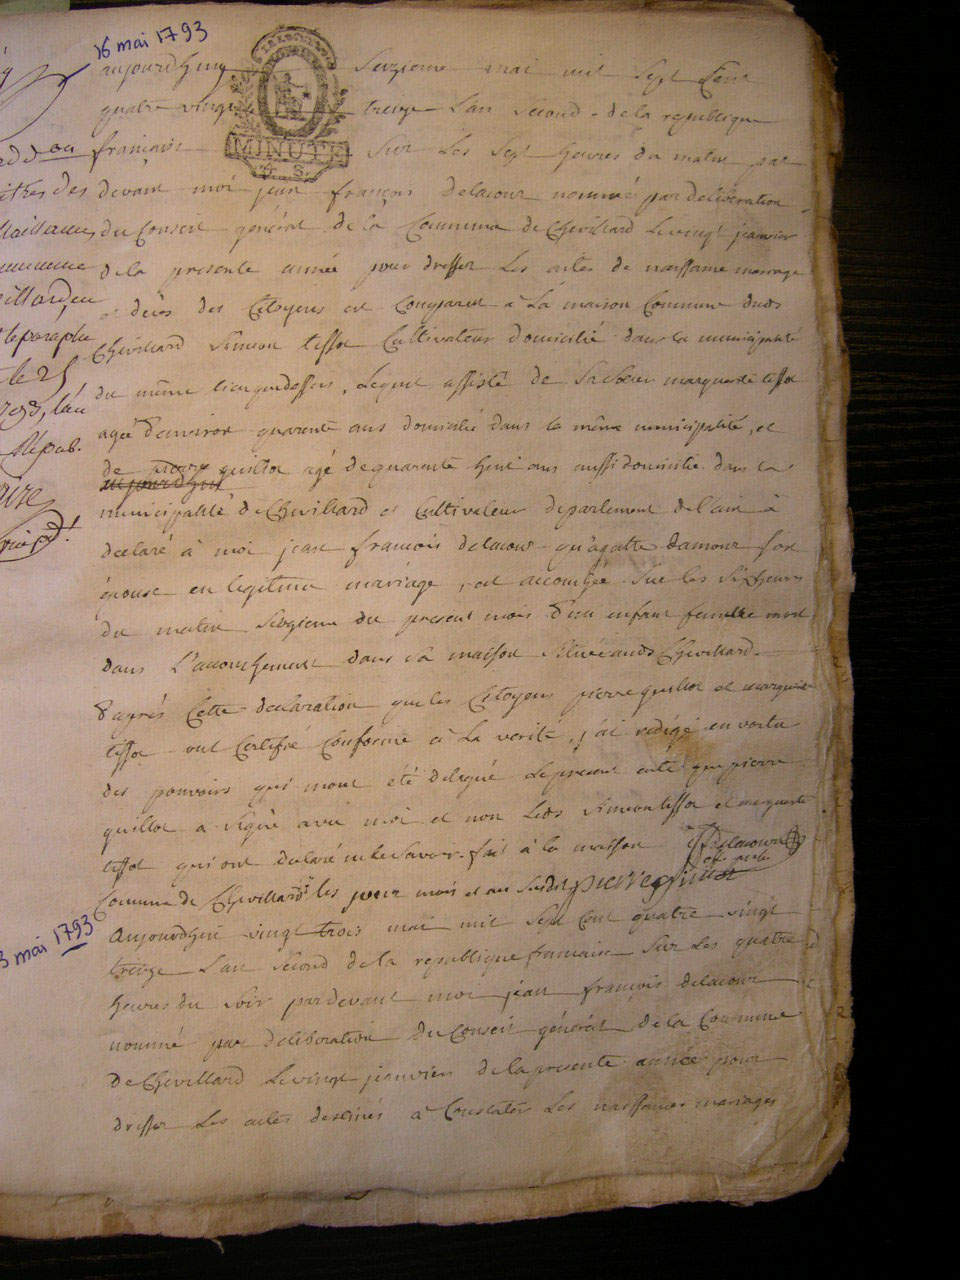 16 mai 1793
aujourdhuy Seizieme mai mil Sept Cent
quatre vingt treize Lan Second de la republique
francaise Sur Les Sept heures du matin par
MINUTE
4 S.
devant moi jean françois delacour nommé par deliberation
du Conseil général de la Commune de Chevillard Le vingt janvier
de la presente année pour dresser Les actes de naissance mariage
et décès des Citoyens est Comparu a La maison Commune dudt
Chevillard Simeon tissot Cultivateur domicilié dans la municipalité
du même lieu que dessus, Lequel assisté de Sa Sœur marguerite tissot
agée d'environ quarente ans domicilié dans la même municipalité, et
de pierre guillot agé de quarente huit ans aussi domicilié dans la
municipalité de Chevillard et Cultivateur departement de l'ain à
declaré à moi jean francois delacour qu'agatte damour son
épouse en legitime mariage, est accouchée Sur les Six heures
du matin Seizieme du present mois d'un enfant femelle mort
dans L'accouchement dans sa maison Située audt Chevillard
d'après Cette declaration que les Citoyens pierre guillot et marguerite
tissot ont Certifié Conforme à La verité, j'ai redigé en vertu
des pouvoirs qui mont été delegué Le present acte que pierre
guillot a Signé avec moi et non Leds Simeon tissot et marguerite
tissot qui ont declaré ne le Savoir. fait à la maison Jf delacour
Commune de Chevillard les jour mois et an Susdit pierre guillot
3 mai 1793
Aujourdhui vingt trois mai mil Sept Cent quatre vingt
treize Lan Second de la republique francaise Sur Les quatre
heures du Soir pardevant moi jean françois delacour
nommé par deliberation du Conseil général de la Commune
de Chevillard Le vingt janvier de la presente année pour
dresser Les actes destinés a Constater Les naissances mariages